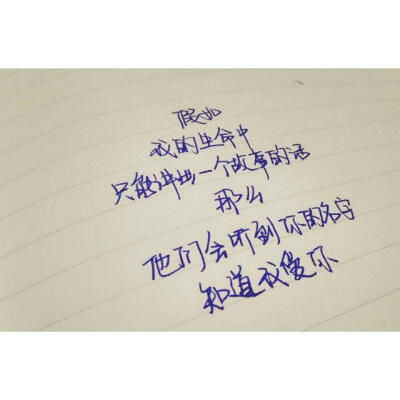 假如
我的生命中
只能讲出一个故事的话
那么
他们会听到你的名字
知道我爱你